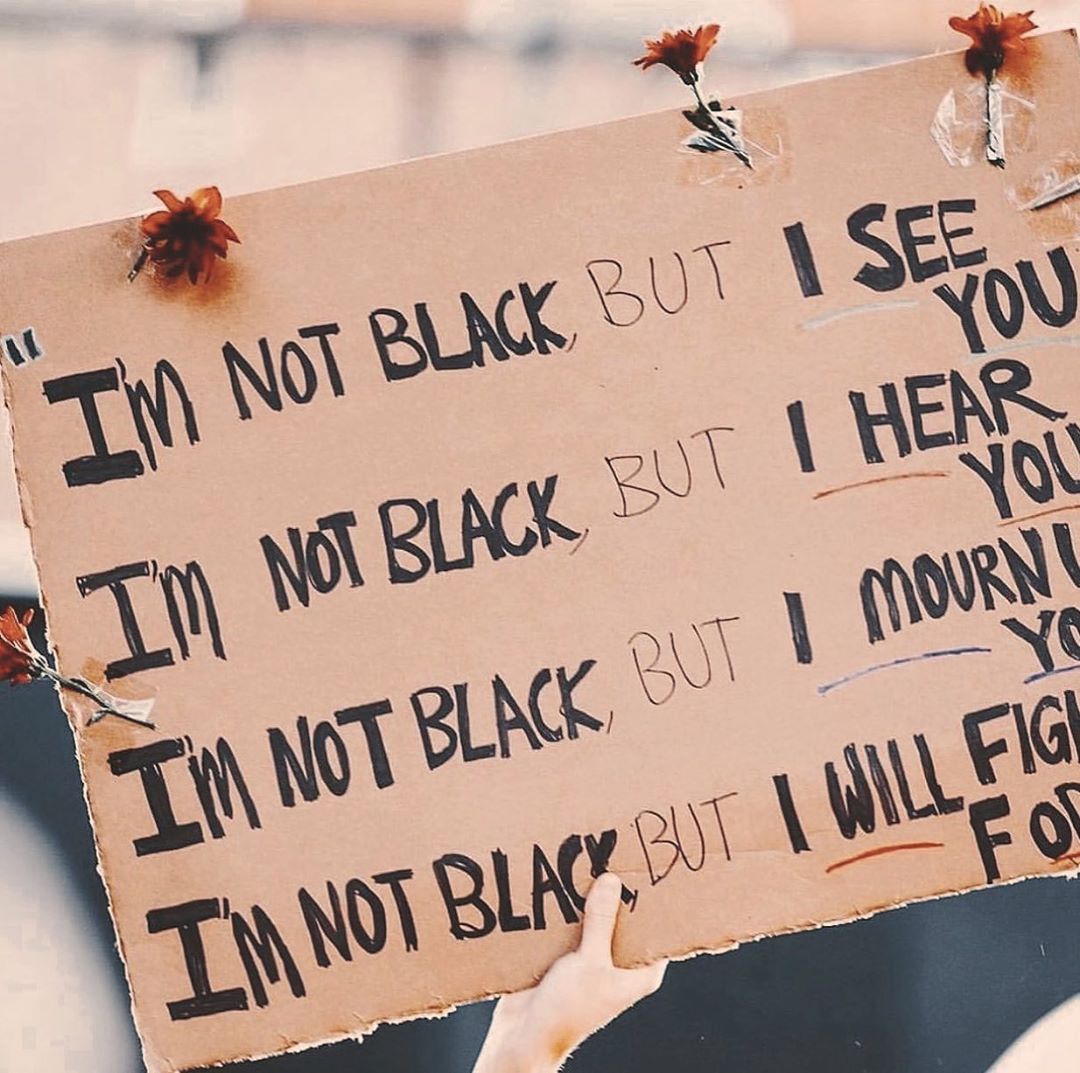 "I'M NOT BLACK, BUT I SEE
YOU
I'M NOT BLACK, BUT I HEAR
YOU
I'M NOT BLACK, BUT I MOURN
I'M NOT BLACK, BUT I WILL